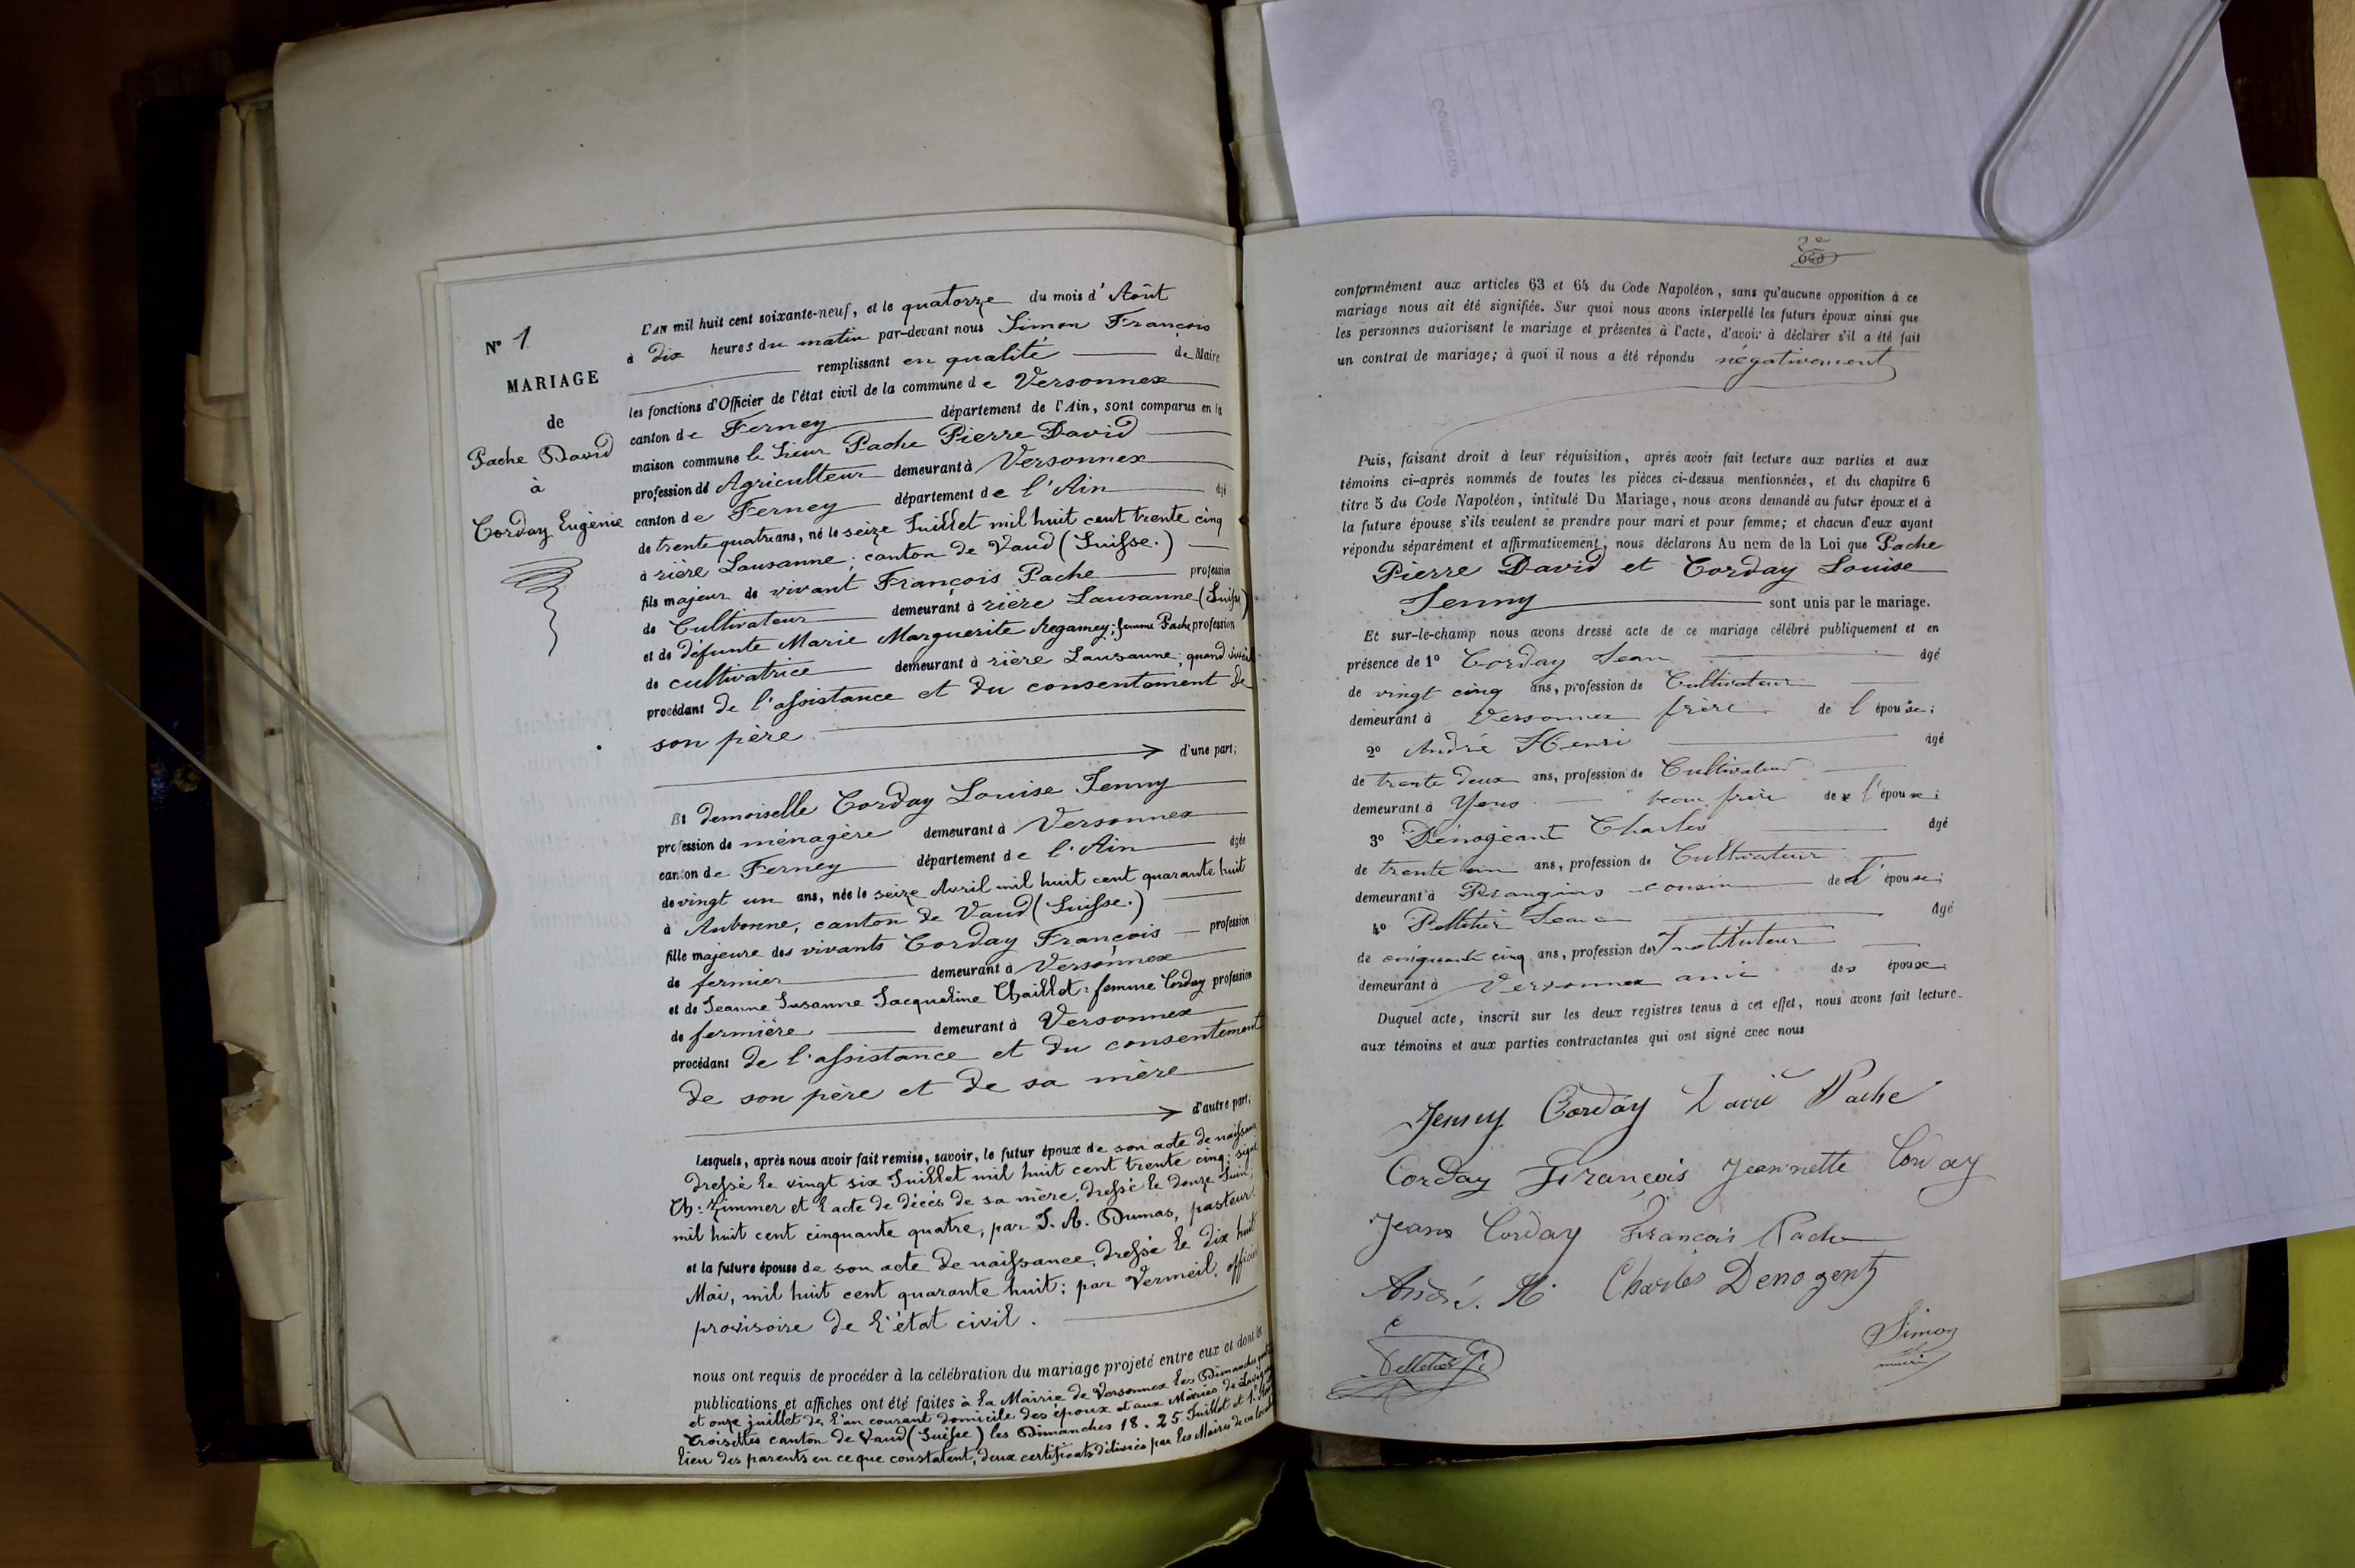 N° 1
MARIAGE
de
Pache David
à
Corday Eugénie
L'AN mil huit cent soixante-neuf, et le quatorze du mois d'Août
à dix heures du matin par-devant nous Simon François
remplissant en qualité de Maire
les fonctions d'Officier de l'état civil de la commune de Versonnex
canton de Ferney département de l'Ain, sont comparus en la
maison commune le Sieur Pache Pierre David
profession de Agriculteur demeurant à Versonnex
canton de Ferney département de l'Ain âgé
de trente quatre ans, né le seize Juillet mil huit cent trente cinq
à rière Lausanne; canton de Vaud (Suisse.)
fils majeur de vivant François Pache profession
de Cultivateur demeurant à rière Lausanne (Suisse)
et de défunte Marie Marguerite Regamey; femme Pache profession
de cultivatrice demeurant à rière Lausanne; quand vivait
procédant de l'assistance et du consentement de
son père
d'une part;
Et demoiselle Corday Louise Jenny
profession de ménagère demeurant à Versonnex
canton de Ferney département de l'Ain âgée
de vingt un ans, née le seize Avril mil huit cent quarante huit
à Aubonne, canton de Vaud (Suisse.)
fille majeure des vivants Corday François profession
de fermier demeurant à Versonnex
et de Jeanne Susanne Jacqueline Chaillot: femme Corday profession
de fermière demeurant à Versonnex
procédant de l'assistance et du consentement
de son père et de sa mère
d'autre part;
Lesquels, après nous avoir fait remise, savoir, le futur époux de son acte de naissance
dressé le vingt six Juillet mil huit cent trente cinq; signé
Ch: Zimmer et l'acte de décès de sa mère, dressé le douze Juin,
mil huit cent cinquante quatre, par J. A. Dumas, pasteur.
et la future épouse de son acte de naissance, dressé le dix huit
Mai, mil huit cent quarante huit: par Vermeil, officier
provisoire de l'état civil.
nous ont requis de procéder à la célébration du mariage projeté entre eux et dont les
publications et affiches ont été faites à la Mairie de Versonnex les Dimanches
et onze juillet de l'an courant domicile des époux et aux Mairies de
Croisettes canton de Vaud (Suisse) les Dimanches 18. 25 Juillet et 1er
lieu des parents en ce que constatent, deux certificats délivrés par les Maires de ces
2e
conformément aux articles 63 et 64 du Code Napoléon, sans qu'aucune opposition à ce
mariage nous ait été signifiée. Sur quoi nous avons interpellé les futurs époux ainsi que
les personnes autorisant le mariage et présentes à l'acte, d'avoir à déclarer s'il a été fait
un contrat de mariage; à quoi il nous a été répondu négativement
Puis, faisant droit à leur réquisition, après avoir fait lecture aux parties et aux
témoins ci-après nommés de toutes les pièces ci-dessus mentionnées, et du chapitre 6
titre 5 du Code Napoléon, intitulé Du Mariage, nous avons demandé au futur époux et à
la future épouse s'ils veulent se prendre pour mari et pour femme; et chacun d'eux ayant
répondu séparément et affirmativement, nous déclarons Au nom de la Loi que Pache
Pierre David et Corday Louise
Jenny sont unis par le mariage.
Et sur-le-champ nous avons dressé acte de ce mariage célébré publiquement et en
présence de 1° Corday Jean âgé
de vingt cinq ans, profession de Cultivateur
demeurant à Versonnex frère de l'épouse;
2° André Henri âgé
de trente deux ans, profession de Cultivateur
demeurant à Yens beau frère de l'épouse;
3° Dénogeant Charles âgé
de trente un ans, profession de Cultivateur
demeurant à Prangins cousin de l'épouse;
4° Pelletier Jean âgé
de cinquante cinq ans, profession de Instituteur
demeurant à Versonnex ami des époux
Duquel acte, inscrit sur les deux registres tenus à cet effet, nous avons fait lecture
aux témoins et aux parties contractantes qui ont signé avec nous
Jenny Corday David Pache
Corday François Jeannette Corday
Jean Corday François Pache
André. H. Charles Denogent
Simon
Pelletier J.
maire